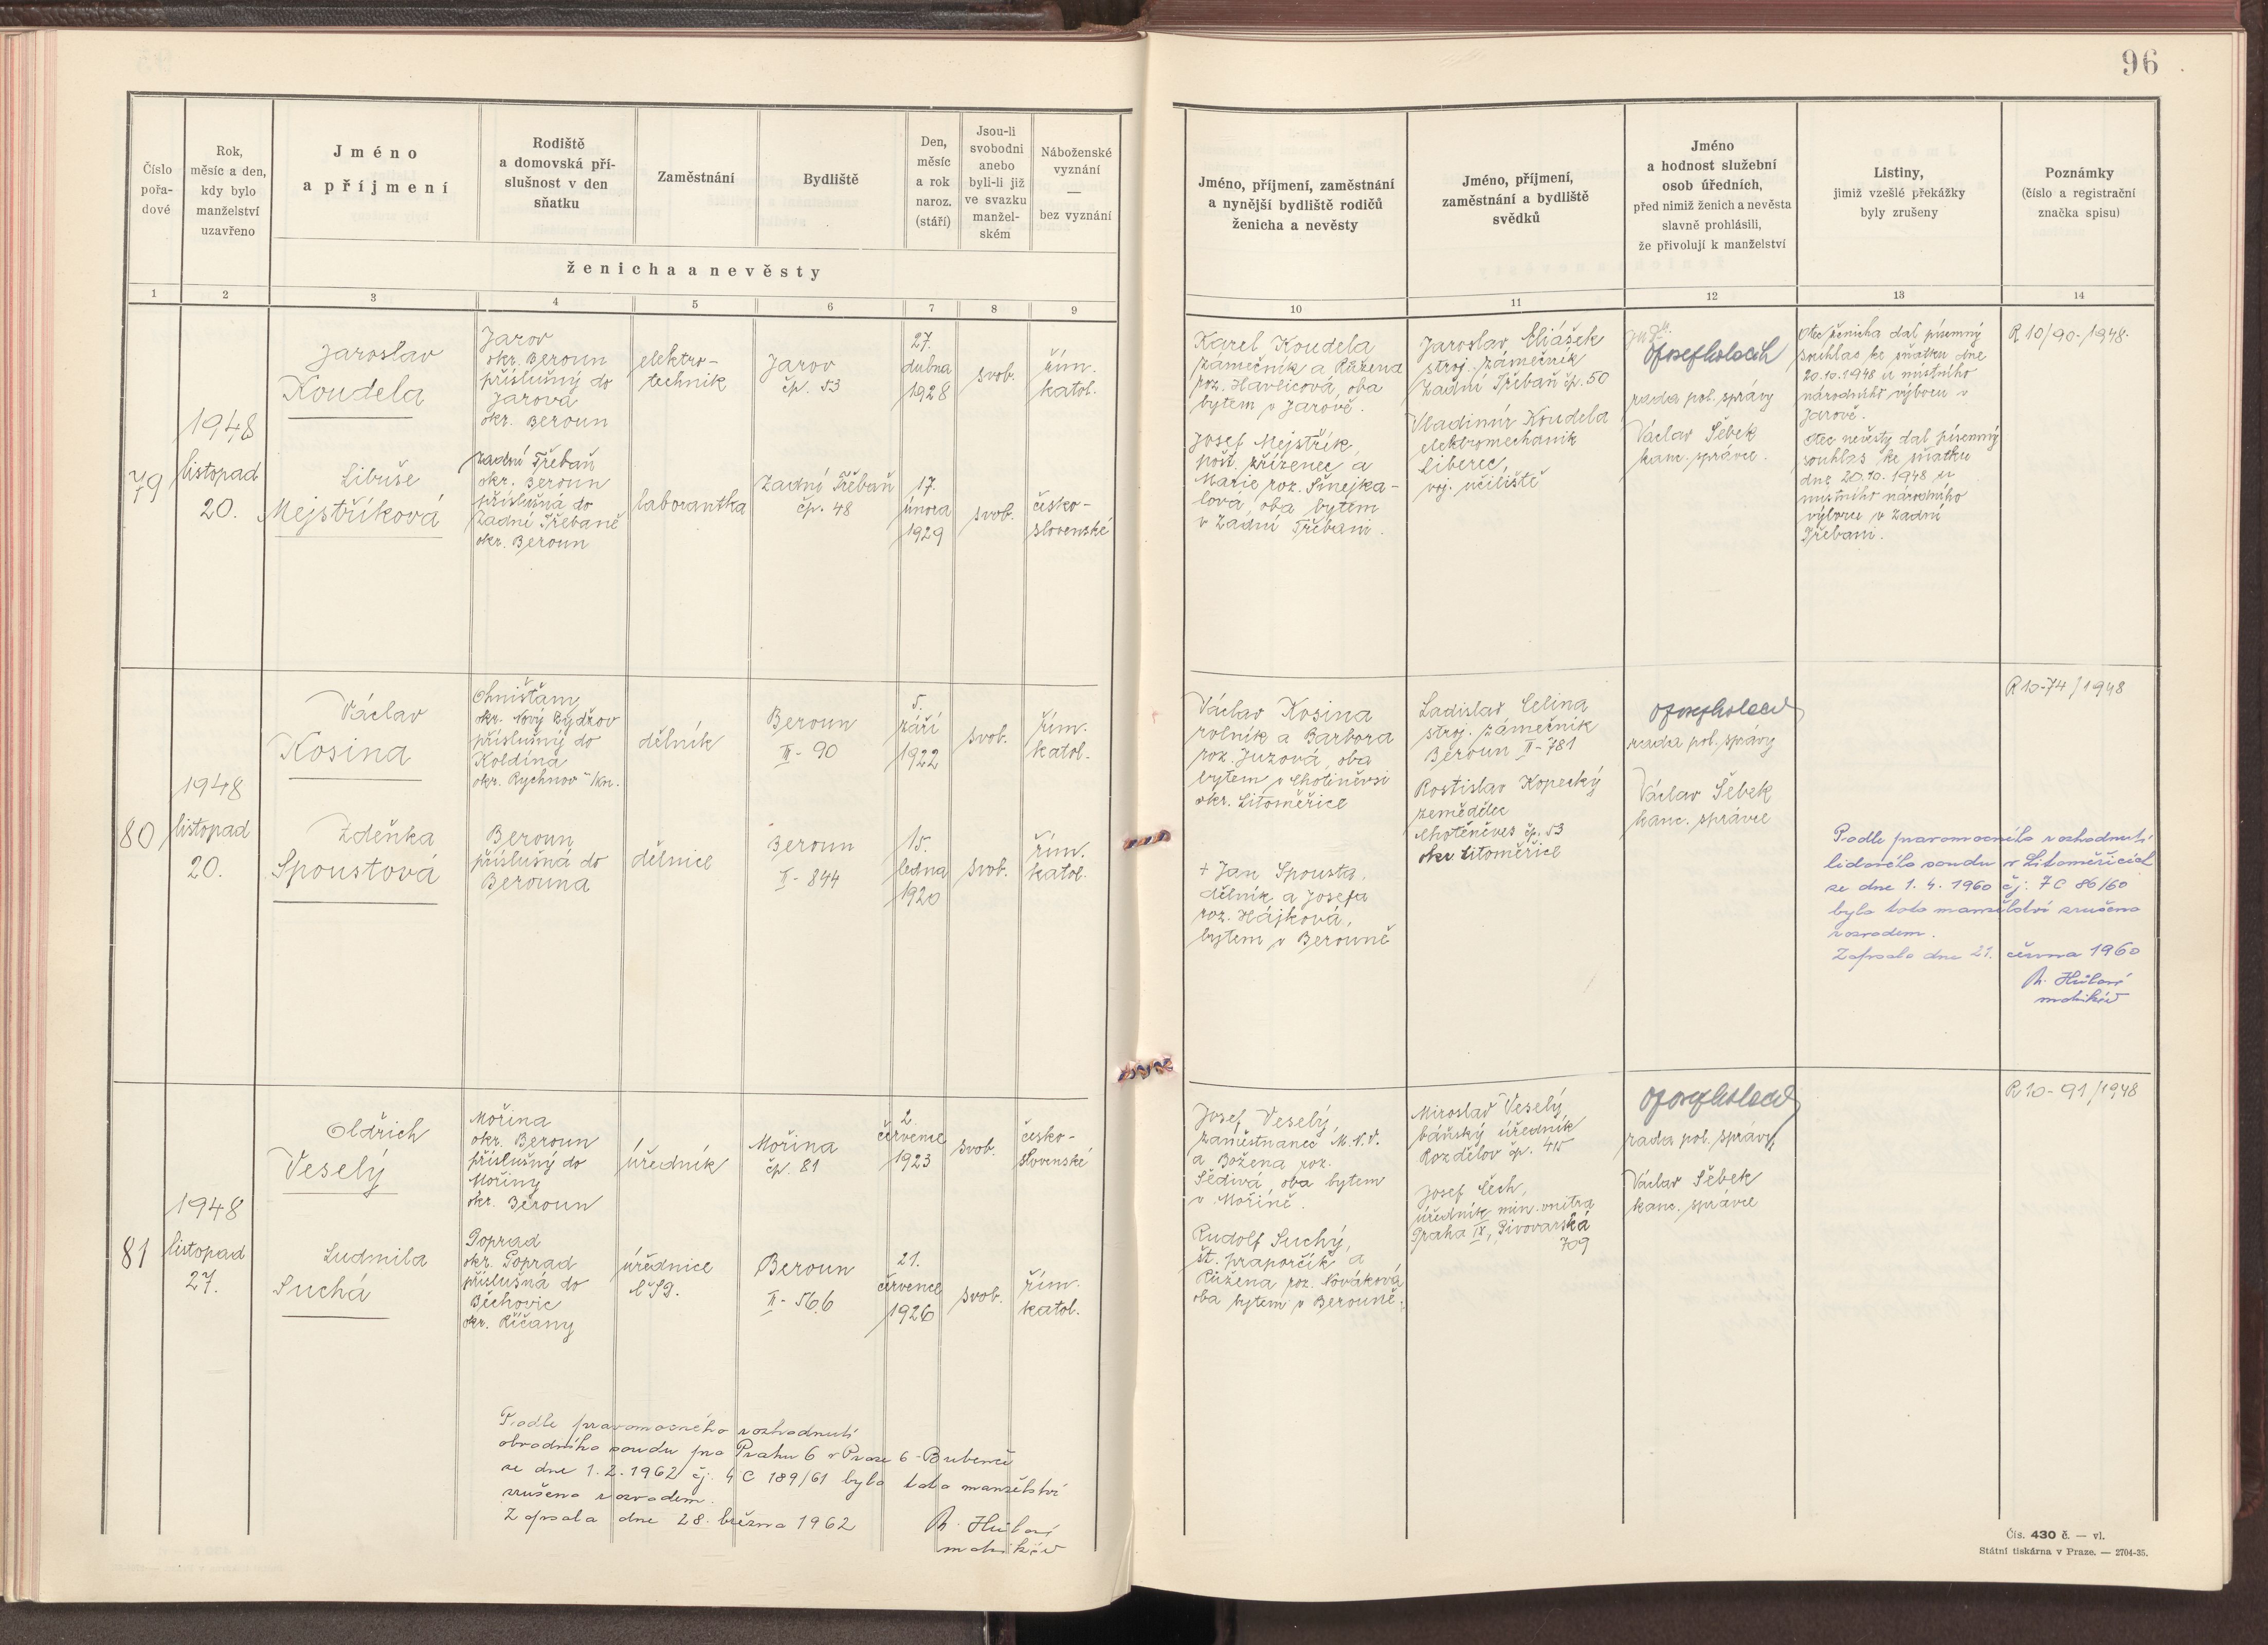 96
Číslo
pořa-
dové
Rok,
měsíc a den,
kdy bylo
manželství
uzavřeno
Jméno
a příjmení
Rodiště
a domovská pří-
slušnost v den
sňatku
Zaměstnání
Bydliště
Den,
měsíc
a rok
naroz.
(stáří)
Jsou-li
svobodni
anebo
byli-li již
ve svazku
manžel-
ském
Náboženské
vyznání
—
bez vyznání
ženicha a nevěsty
Jméno, příjmení, zaměstnání
a nynější bydliště rodičů
ženicha a nevěsty
Jméno, příjmení,
zaměstnání a bydliště
svědků
Jméno
a hodnost služební
osob úředních,
před nimiž ženich a nevěsta
slavně prohlásili,
že přivolují k manželství
Listiny,
jimiž vzešlé překážky
byly zrušeny
Poznámky
(číslo a registrační
značka spisu)
1 2 3 4 5 6 7 8 9 10 11 12 13 14
79
1948
listopad
20.
Jaroslav
Koudela
Jarov
okr. Beroun
příslušný do
Jarova
okr. Beroun
elektro-
technik
Jarov
čp. 53
27.
dubna
1928
svob.
řím.
katol.
Libuše
Mejstříková
Zadní Třebaň
okr. Beroun
příslušná do
Zadní Třebaně
okr. Beroun
laborantka
Zadní Třebaň
čp. 48
17.
února
1929
svob.
česko-
slovenské
Karel Koudela
zámečník a Růžena
roz. Havlicová, oba
bytem v Jarově.
Josef Mejstřík,
pošt. zřízenec a
Marie roz. Šnejka-
lová, oba bytem
v Zadní Třebani.
Jaroslav Eliášek
stroj. zámečník
Zadní Třebaň čp. 50
Vladimír Koudela
elektromechanik
Liberec,
voj. učiliště
rada pol. správy
Václav Šebek
kanc. správce.
Otec ženicha dal písemný
souhlas ke sňatku dne
20.10.1948 u místního
národního výboru v
Jarově.
Otec nevěsty dal písemný
souhlas ke sňatku
dne 20.10.1948 u
místního národního
výboru v Zadní
Třebani.
R 10/90-1948.
80
1948
listopad
20.
Václav
Kosina
Chništan
okr. Nový Bydžov
příslušný do
Koldína
okr. Rychnov n/Kn.
dělník
Beroun
II - 90
5.
září
1922
svob.
řím.
katol.
Zdeňka
Spoustová
Beroun
příslušná do
Berouna
dělnice
Beroun
II - 844
15.
ledna
1920
svob.
řím.
katol.
Václav Kosina
rolník a Barbora
roz. Juzová, oba
bytem v Chotiněvsi
okr. Litoměřice
+ Jan Spousta,
dělník a Josefa
roz. Hájková,
bytem v Berouně
Ladislav Celina
stroj. zámečník
Beroun II - 781
Rostislav Kopecký
zemědělec
Chotěněves čp. 53
okr Litoměřice
rada pol. správy
Václav Šebek
kanc. správce
R 10-74/1948
Podle pravomocného rozhodnutí
lidového soudu v Litoměřicích
ze dne 1. 4. 1960 čj. 7 C 86/60
bylo toto manželství zrušeno
rozvodem.
Zapsala dne 21. června 1960
matrikář
81
1948
listopad
27.
Oldřich
Veselý
Mořina
okr. Beroun
příslušný do
Mořiny
okr. Beroun
úředník
Mořina
čp. 81
2.
července
1923
svob.
česko-
slovenské
Ludmila
Suchá
Poprad
okr. Poprad
příslušná do
Běchovic
okr. Říčany
úřednice
ČSD.
Beroun
II - 566
21.
července
1926
svob.
řím.
katol.
Josef Veselý,
zaměstnanec M.N.V.
a Božena roz.
Šedivá, oba bytem
v Mořině.
Rudolf Suchý,
št. praporčík a
Růžena roz. Nováková
oba bytem v Berouně.
Miroslav Veselý
báňský úředník
Rozdělov čp. 415
Josef Čech,
úředník min. vnitra
Praha IX, Pivovarská
709
rada pol. správy
Václav Šebek
kanc. správce
R 10-91/1948
Podle pravomocného rozhodnutí
obvodního soudu pro Prahu 6 v Praze 6 - Bubenči
ze dne 1. 2. 1962 čj. 4 C 189/61 bylo toto manželství
zrušeno rozvodem.
Zapsala dne 28. března 1962
matrikář
Čís. 430 č. — vl.
Státní tiskárna v Praze. — 2704-35.